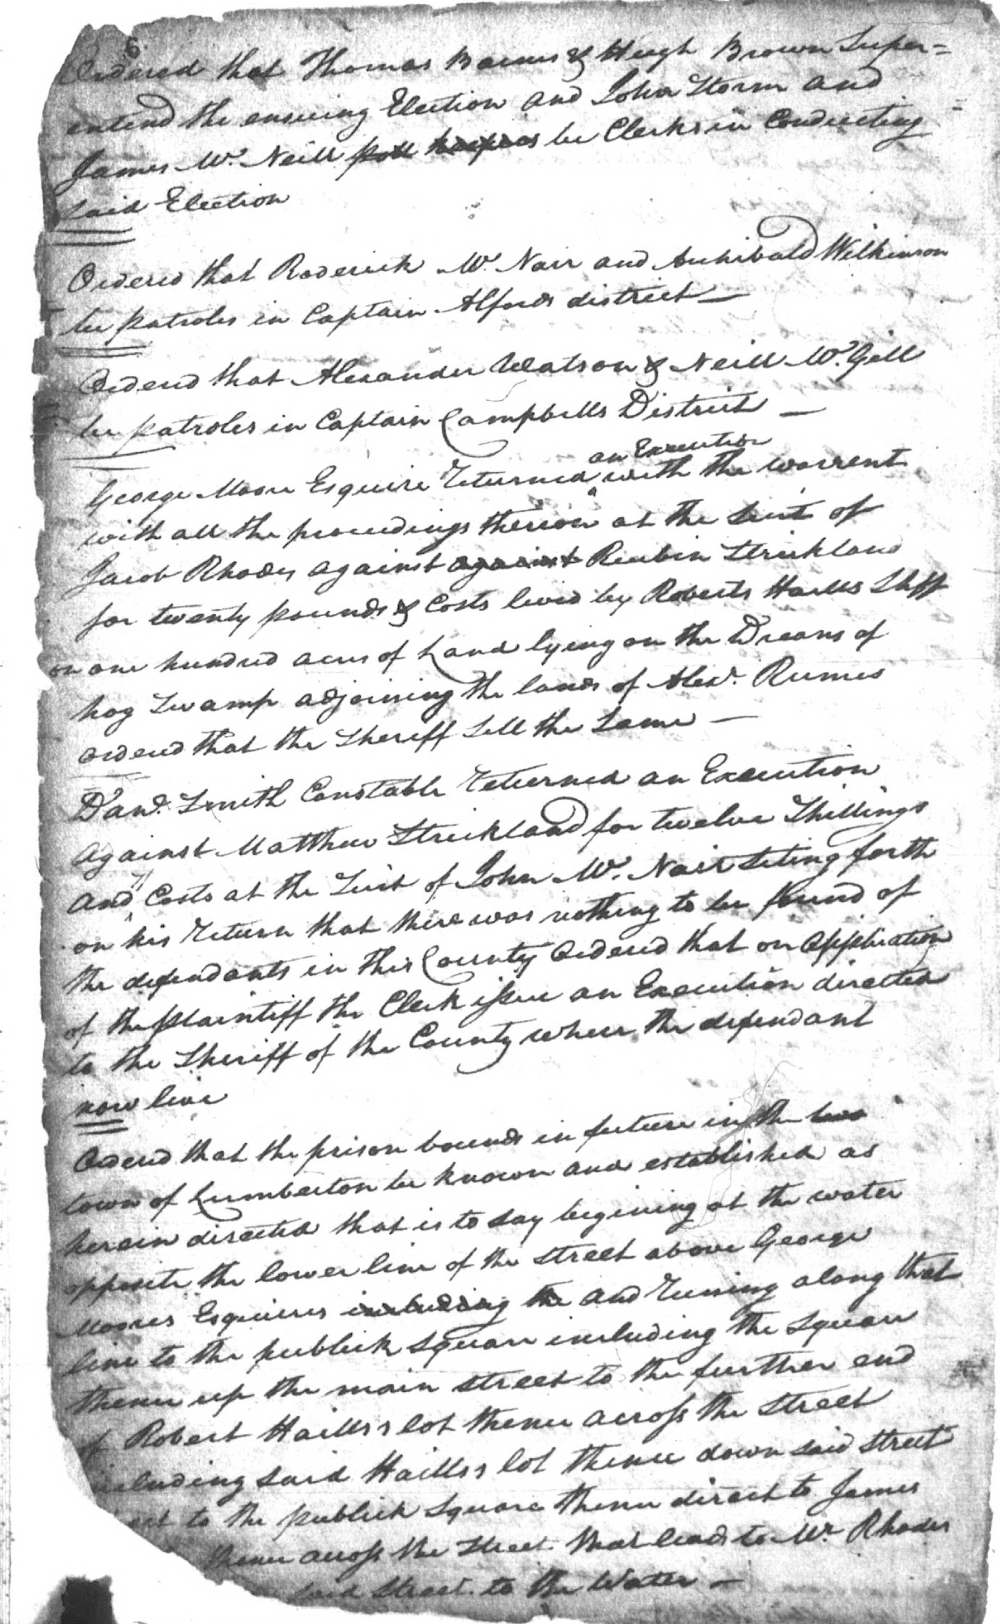 6
Ordered that Thomas Barnes & Hugh Brown Super=
entend the ensuing Election and John Storm and
James Mc. Neill poll keepers be Clerks in Conducting
said Election
Ordered that Roderick Mc. Nair and Archibald Wilkinson
be patroles in Captain Alfords district —
Ordered that Alexander Watson & Neill Mc. Gill
be patroles in Captain Campbells District —
an Execution
George Moore Esquire Returned with the warrent
with all the proceedings thereon at the Suit of
Jacob Rhodes against against Reubin Strickland
for twenty pounds & Costs livid by Roberts Hails Shff
on one hundred acres of Land lying on the Dreans of
hog Swamp adjoining the lands of Alexr. Rumes
ordered that the Sheriff Sell the Same —
Danl. Smith Constable Returned an Execution
against Matthew Strickland for twelve Shillings
and Costs at the Suit of John Mc. Nair Seting forth
on his Return that there was nothing to be found of
the defendants in this County Ordered that on application
of the plaintiff the Clerk issue an Execution directed
to the Sheriff of the County where the defendant
now live
Ordered that the prison bounds in future in the
town of Lumberton be known and established as
herein directed that is to say begining at the water
opposite the lower line of the street above George
Moores Esquires including the and Runing along that
line to the publick square including the square
thence up the main street to the further end
of Robert Hailes lot thence across the Street
including said Hailes lot thence down said street
to the publick square thence direct to James
thence across the Street that leads to Mr. Rhodes
said Street to the Water —